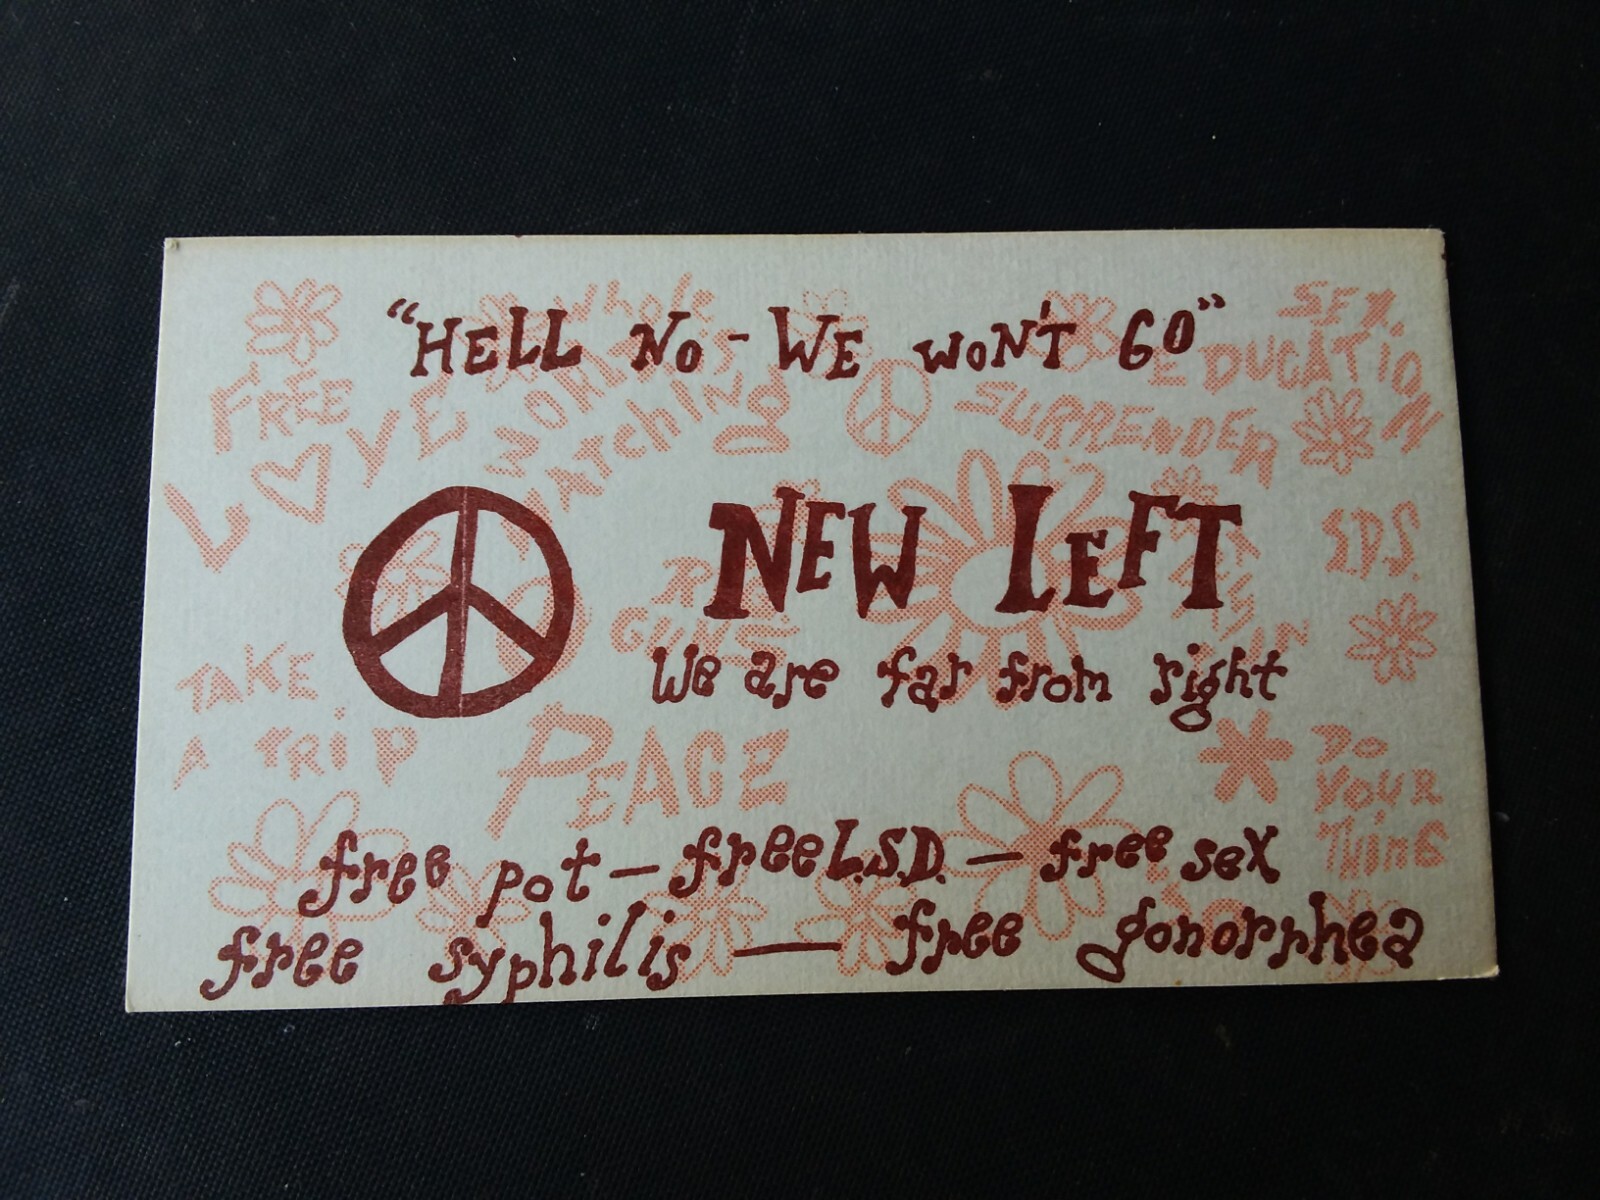 "HELL NO - WE WON'T GO"
NEW LEFT
We are far from right
free pot — free L.S.D. — free sex
free syphilis — free gonorrhea
FREE
LOVE
Whole
WORLD IS
WATCHING
SURRENDER
SEX
EDUCATION
SDS.
GUNS
TAKE
A TRIP
PEACE
DO
YOUR
THING